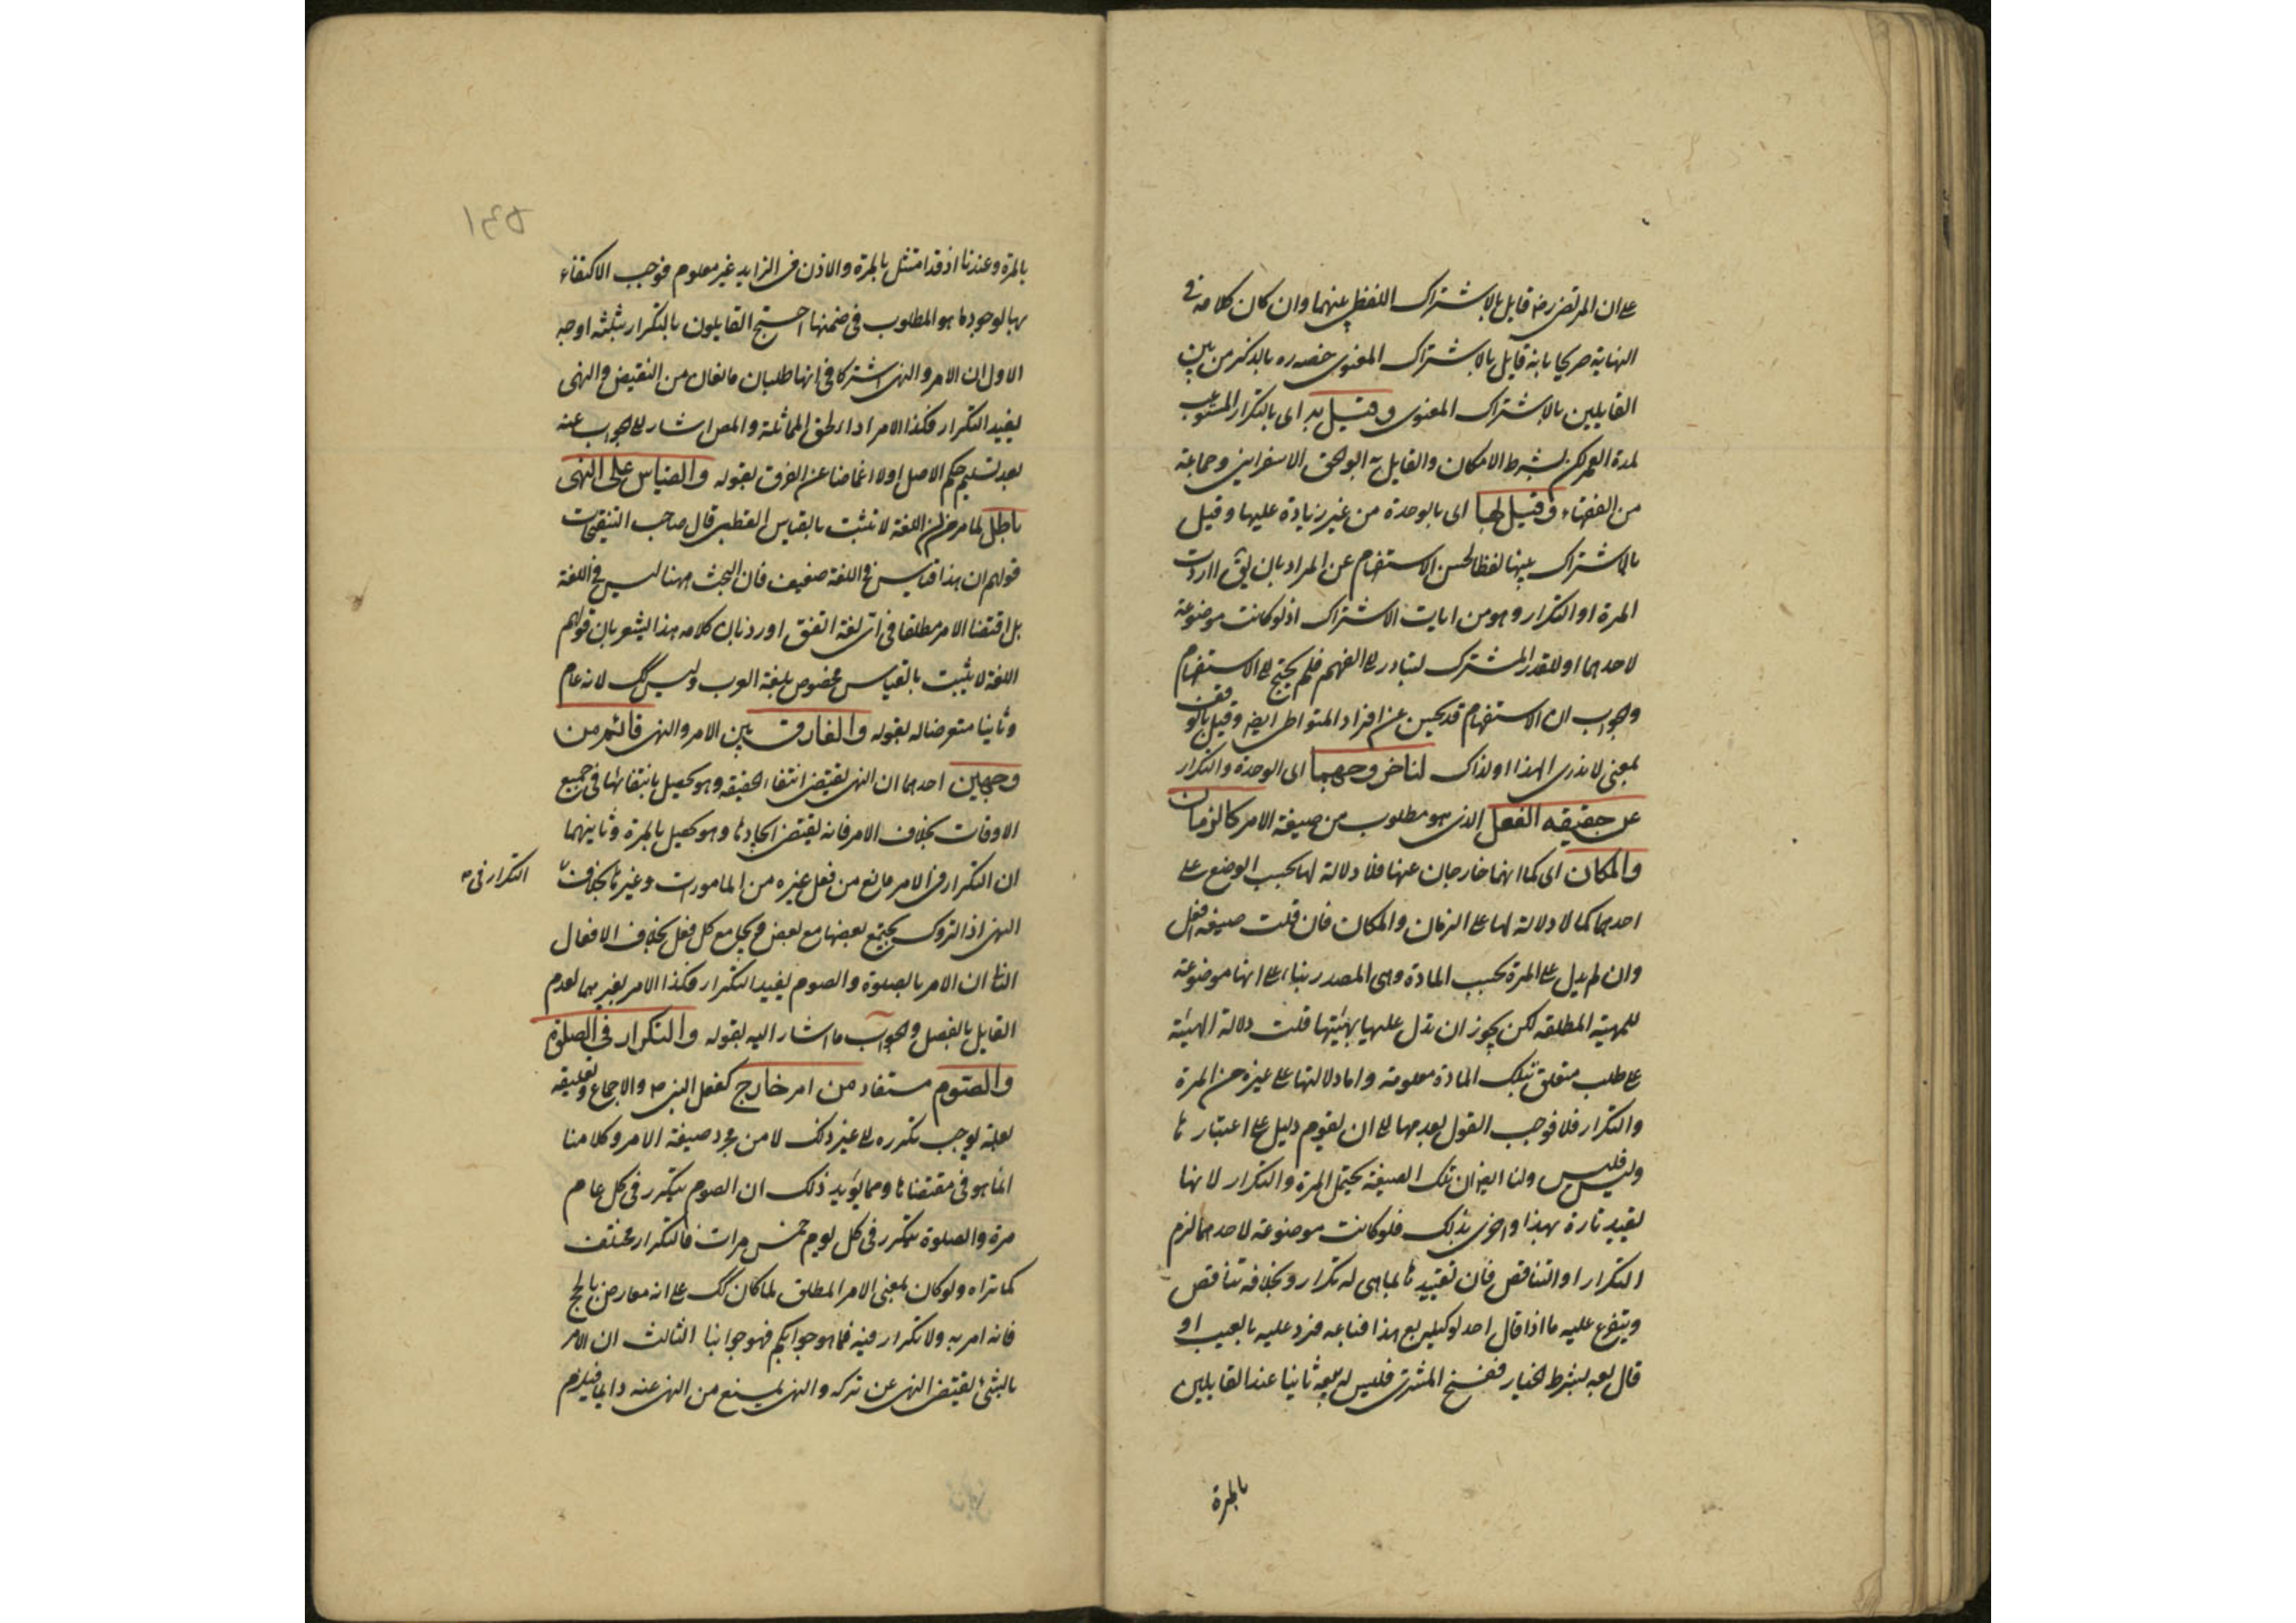 على ان المرتضى رضه قايل بالاشتراك اللفظى بينهما وان كان كلامه فى
النهاية صريحا بانه قايل بالاشتراك المعنوى خصه ره بالذكر من بين
القايلين بالاشتراك المعنوى وقيل به اى بالتكرار المستوعب
لمدة العمر لكن بشرط الامكان والقايل به ابو اسحق الاسفراينى وجماعة
من الفقهاء وقيل لها اى بالوحدة من غير زيادة عليها وقيل
بالاشتراك بينها لفظا لحسن الاستفهام عن المراد بان يق اردت
المرة او التكرار وهو من ايات الاشتراك اذ لو كانت موضوعة
لاحدهما او للقدر المشترك لتبادر الى الفهم فلم يحتج الى الاستفهام
والجواب ان الاستفهام قد يحسن عن افراد المتواطى ايضا وقيل بالوقف
بمعنى لا ندرى الهذا او لذاك لنا خروجهما اى الوحدة والتكرار
عن حقيقة الفعل الذى هو مطلوب من صيغة الامر كالزمان
والمكان اى كما انهما خارجان عنها فلا دلالة لها بحسب الوضع على
احدهما كما لا دلالة لها على الزمان والمكان فان قلت صيغة افعل
وان لم يدل على المرة بحسب المادة وهى المصدر بناء على انها موضوعة
للمهية المطلقة لكن يجوز ان تدل عليها بهيئتها قلت دلالة الهيئة
على طلب متعلق بتلك المادة معلومة واما دلالتها على غيره من المرة
والتكرار فلا فوجب القول بعدمها الى ان يقوم دليل على اعتبارها
وليس فليس ولنا ايضا ان تلك الصيغة يحتمل المرة والتكرار لانها
يقيد تارة بهذا واخرى بذلك فلو كانت موضوعة لاحدهما لزم
التكرار او التناقض فان تقييدها بما هى له تكرار وبخلافه تناقض
ويتفرع عليه ما اذا قال احد لوكيله بع هذا فباعه فرد عليه بالعيب او
قال بعه بشرط الخيار ففسخ المشترى فليس له بيعه ثانيا عند القايلين
بالمرة
١٣٥
بالمرة وعندنا اذ قد امتثل بالمرة والاذن فى الزايد غير معلوم فوجب الاكتفاء
بها لوجود ما هو المطلوب فى ضمنها احتج القايلون بالتكرار بثلثة اوجه
الاول ان الامر والنهى اشتركا فى انهما طلبان مانعان من النقيض والنهى
يفيد التكرار فكذا الامر اذا لحق المماثلة والمص اشار الى الجواب عنه
بعد تسليم حكم الاصل اولا اغماضا عن الفرق بقوله والقياس على النهى
باطل لما مر من ان اللغة لا تثبت بالقياس القطبى قال صاحب التنقيحات
قولهم ان هذا قياس فى اللغة ضعيف فان البحث ههنا ليس فى اللغة
بل اقتضا الامر مطلقا فى اى لغة اتفق اورد بان كلامه هذا يشعر بان قولهم
اللغة لا يثبت بالقياس مخصوص بلغة العرب وليس كك لانه عام
وثانيا متعرضا له بقوله والفارق بين الامر والنهى قائم من
وجهين احدهما ان النهى يقتضى انتفاء الحقيقة وهو يحصل بانتفائها فى جميع
الاوقات بخلاف الامر فانه يقتضى ايجادها وهو يحصل بالمرة وثانيهما
ان التكرار فى الامر مانع من فعل غيره من المامورات وغيرها بخلاف
التكرار فى
النهى اذ التروك يجتمع بعضها مع بعض ويجامع كل فعل بخلاف الافعال
الثا ان الامر بالصلوة والصوم يفيد التكرار فكذا الامر بغيرهما لعدم
القايل بالفصل والجواب ما اشار اليه بقوله والتكرار فى الصلوة
والصوم مستفاد من امر خارج كفعل النبى ص والاجماع وتعليقه
بعلة يوجب تكرره الى غير ذلك لا من مجرد صيغة الامر وكلامنا
انما هو فى مقتضاها ومما يؤيد ذلك ان الصوم يتكرر فى كل عام
مرة والصلوة تتكرر فى كل يوم خمس مرات فالتكرار مختلف
كما تراه ولو كان بمعنى الامر المطلق لما كان كك على انه معارض بالحج
فانه امر به ولا تكرار فيه فما هو جوابكم فهو جوابنا الثالث ان الامر
بالشئ يقتضى النهى عن تركه والنهى يمنع من النهى عنه دايما فيلزم